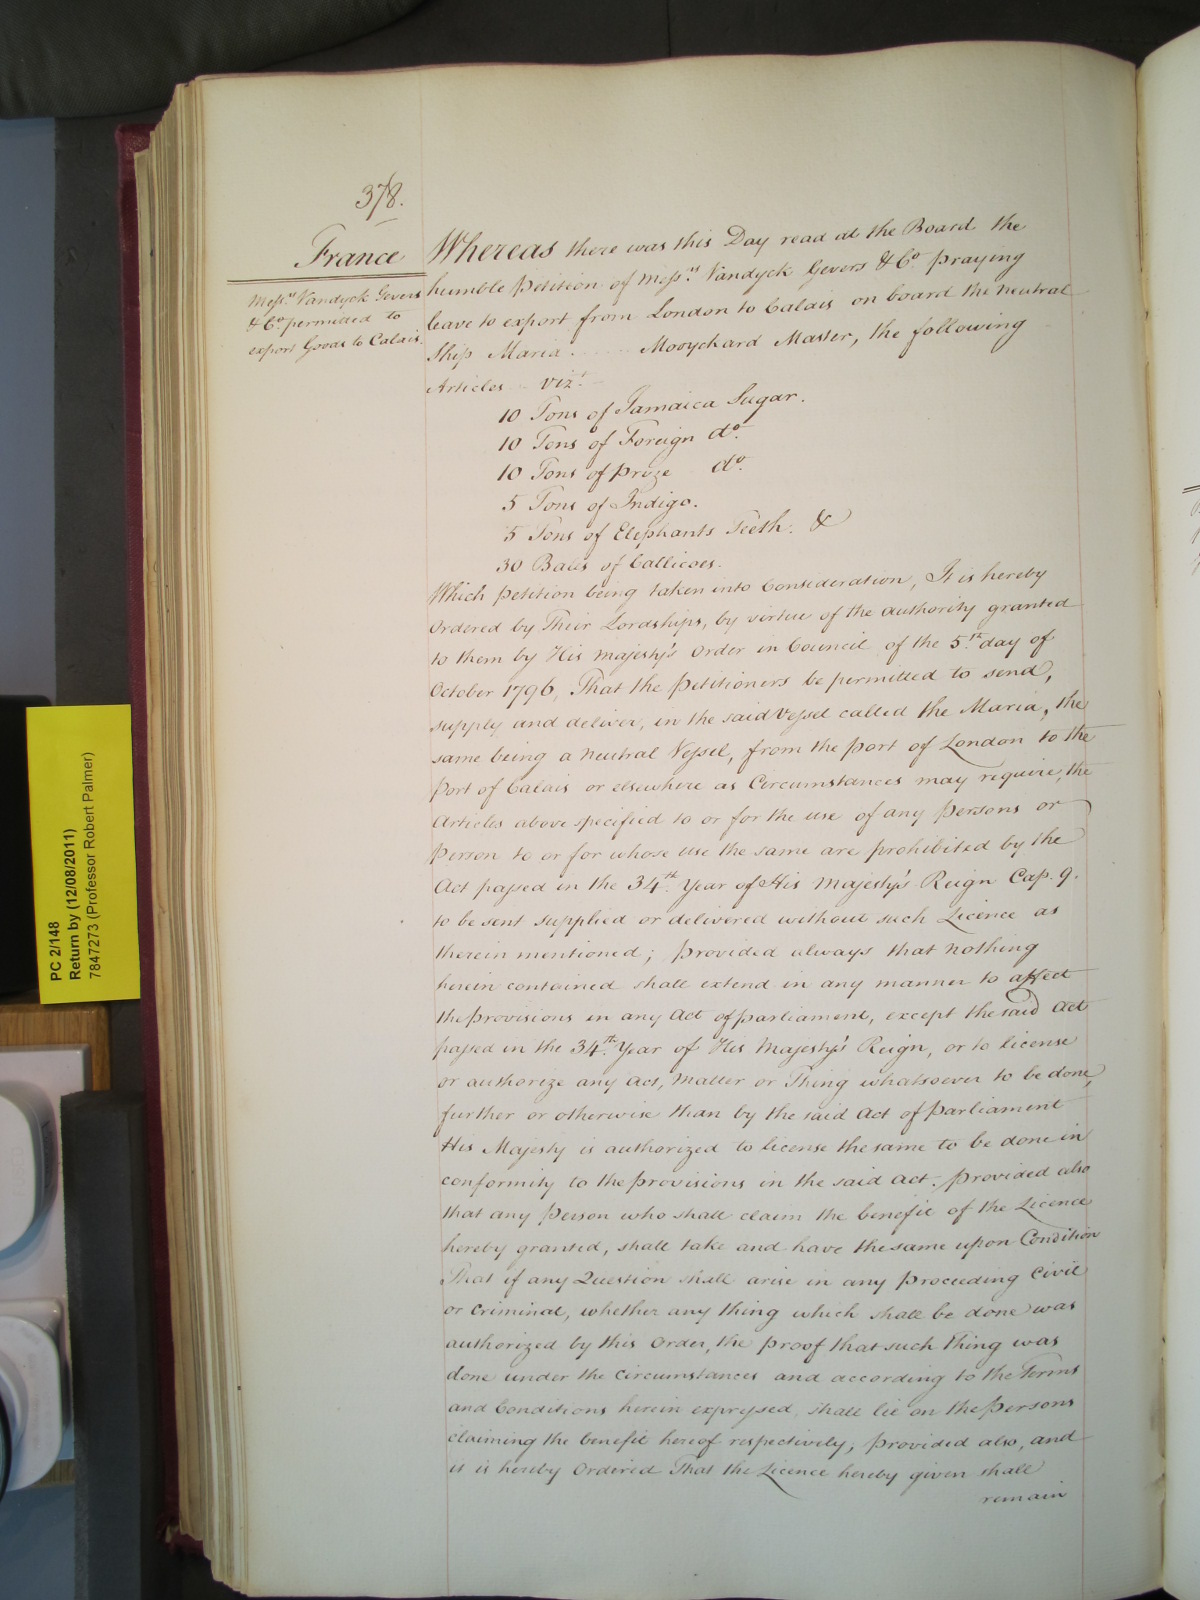 378.
France
Mess.rs Vandyck Gevers
& Co. permitted to
export Goods to Calais.
Whereas there was this Day read at the Board the
humble Petition of Mess.rs Vandyck Gevers & Co. praying
leave to export from London to Calais on board the neutral
Ship Maria ..... Mooychard Master, the following
Articles viz.t
10 Tons of Jamaica Sugar.
10 Tons of Foreign do.
10 Tons of prize do.
5 Tons of Indigo.
5 Tons of Elephants Teeth. &
30 Bales of Callicoes.
Which petition being taken into Consideration, It is hereby
Ordered by Their Lordships, by virtue of the authority granted
to them by His Majesty's Order in Council of the 5.th day of
October 1796, That the Petitioners be permitted to send,
supply and deliver, in the said Vessel called the Maria, the
same being a neutral Vessel, from the port of London to the
Port of Calais or elsewhere as Circumstances may require, the
Articles above specified to or for the use of any Persons or
Person to or for whose use the same are prohibited by the
Act passed in the 34.th Year of His Majesty's Reign Cap. 9.
to be sent supplied or delivered without such Licence as
therein mentioned; provided always that nothing
herein contained shall extend in any manner to affect
the provisions in any Act of parliament, except the said Act
passed in the 34.th Year of His Majesty's Reign, or to license
or authorize any Act, Matter or Thing whatsoever to be done,
further or otherwise than by the said Act of Parliament
His Majesty is authorized to license the same to be done in
conformity to the provisions in the said Act. Provided also
that any Person who shall claim the benefit of the Licence
hereby granted, shall take and have the same upon Condition
That if any Question shall arise in any proceeding Civil
or Criminal, whether any thing which shall be done was
authorized by this Order, the proof that such Thing was
done under the Circumstances and according to the Terms
and Conditions herein expressed shall lie on the Persons
claiming the benefit hereof respectively; provided also, and
it is hereby Ordered That the Licence hereby given shall
remain
PC 2/148
Return by (12/08/2011)
7847273 (Professor Robert Palmer)